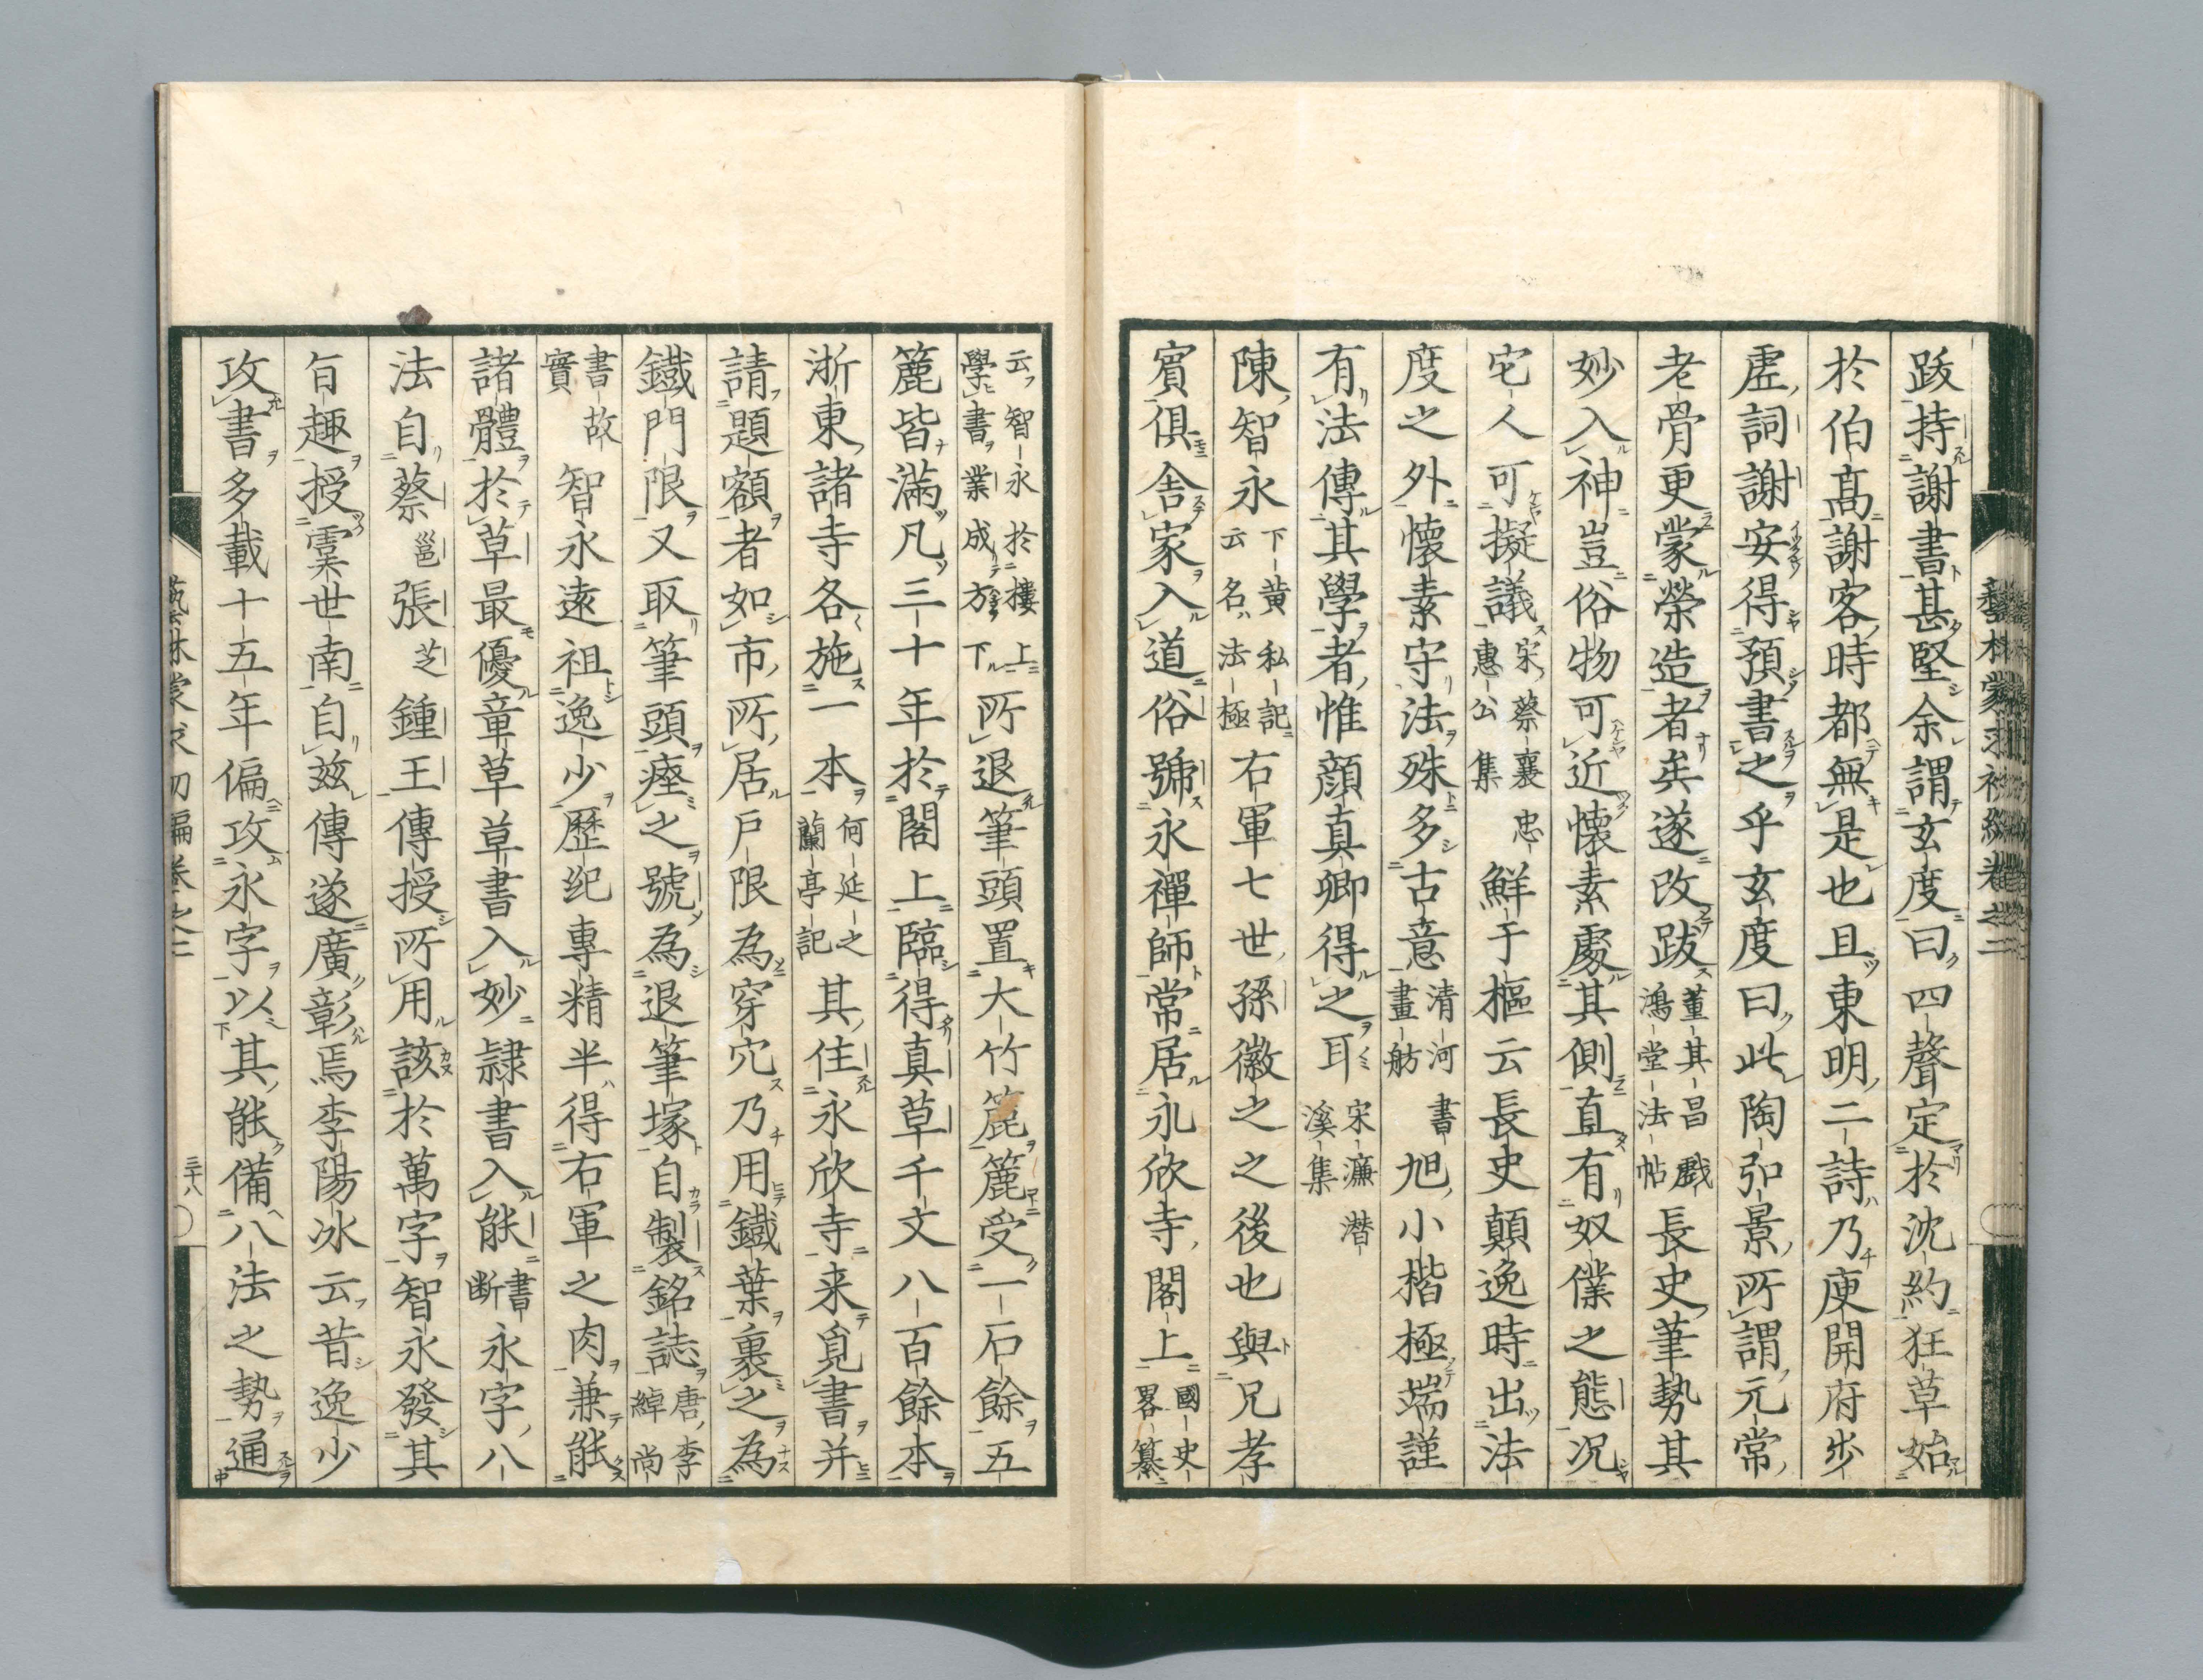 跋持謝書甚堅余謂玄度曰四聲定於沈約狂草始
於伯高謝客時都無是也且東明二詩乃庾開府步
虛詞謝安得預書之乎玄度曰此陶弘景所謂元常
老骨更蒙榮造者矣遂改跋董其昌戲鴻堂法帖長史筆勢其
妙入神豈俗物可近懷素處其側直有奴僕之態况
它人可擬議宋蔡襄忠惠公集鮮于樞云長史顛逸時出法
度之外懷素守法殊多古意清河書畫舫旭小楷極端謹
有法傳其學者惟顔真卿得之耳宋濂潛溪集
陳智永下黄私記云名法極右軍七世孫徽之之後也與兄孝
賓俱舎家入道俗號永禪師常居永欣寺閣上國史纂畧
云智永於樓上學書業成方下所退筆頭置大竹簏簏受一石餘五
簏皆滿凡三十年於閣上臨得真草千文八百餘本
浙東諸寺各施一本何延之蘭亭記其住永欣寺来覓書并
請題額者如市所居戸限為穿穴乃用鐵葉裹之為
鐵門限又取筆頭瘞之號為退筆塚自製銘誌唐李綽尚
書故實智永遠祖逸少歴紀專精半得右軍之肉兼能
諸體於草最優章草草書入妙隷書入能書断永字八
法自蔡邕張芝鍾王傳授所用該於萬字智永發其
旨趣授虞世南自兹傳遂廣彰焉李陽冰云昔逸少
攻書多載十五年偏攻永字以其能備八法之勢通
三十八